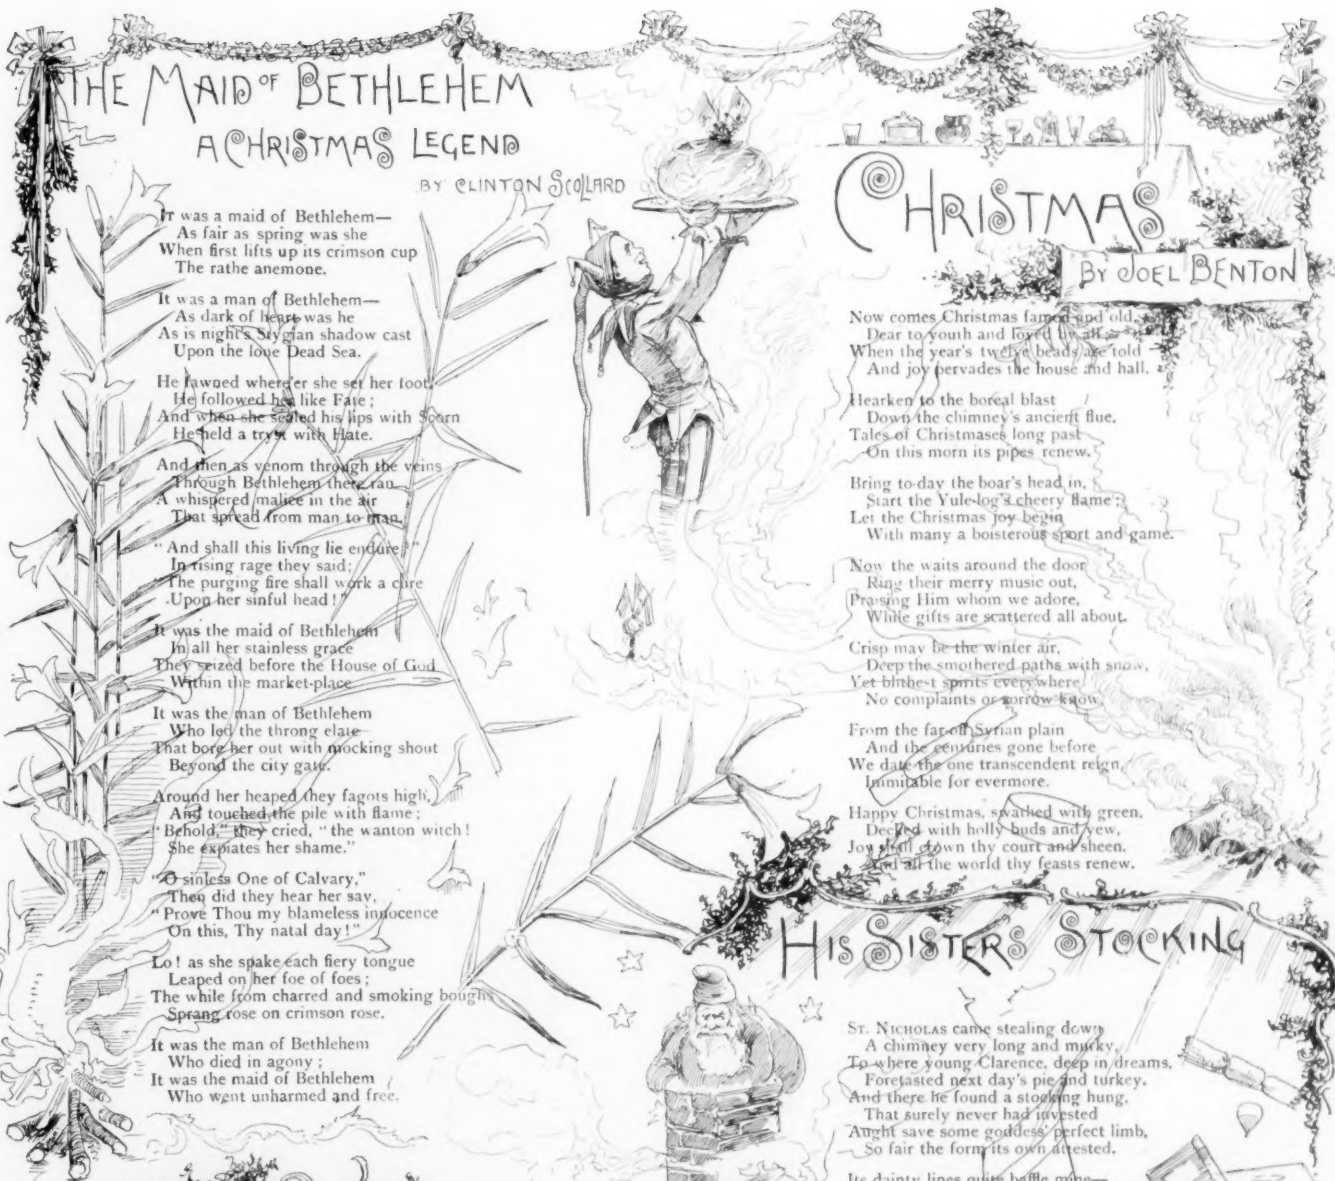 THE MAID OF BETHLEHEM
A CHRISTMAS LEGEND
BY CLINTON SCOLLARD
IT was a maid of Bethlehem—
As fair as spring was she
When first lifts up its crimson cup
The rathe anemone.
It was a man of Bethlehem—
As dark of heart was he
As is night's Stygian shadow cast
Upon the lone Dead Sea.
He fawned where'er she set her foot,
He followed her like Fate;
And when she sealed his lips with Scorn
He held a tryst with Hate.
And then as venom through the veins
Through Bethlehem there ran
A whispered malice in the air
That spread from man to man.
"And shall this living lie endure?"
In rising rage they said;
"The purging fire shall work a cure
Upon her sinful head!"
It was the maid of Bethlehem
In all her stainless grace
They seized before the House of God
Within the market-place.
It was the man of Bethlehem
Who led the throng elate
That bore her out with mocking shout
Beyond the city gate.
Around her heaped they fagots high,
And touched the pile with flame;
"Behold," they cried, "the wanton witch!
She expiates her shame."
"O sinless One of Calvary,"
Then did they hear her say,
"Prove Thou my blameless innocence
On this, Thy natal day!"
Lo! as she spake each fiery tongue
Leaped on her foe of foes;
The while from charred and smoking boughs
Sprang rose on crimson rose.
It was the man of Bethlehem
Who died in agony;
It was the maid of Bethlehem
Who went unharmed and free.
CHRISTMAS
BY JOEL BENTON
Now comes Christmas famed and old,
Dear to youth and loved by all,
When the year's twelve beads are told
And joy pervades the house and hall.
Hearken to the boreal blast
Down the chimney's ancient flue,
Tales of Christmases long past
On this morn its pipes renew.
Bring to-day the boar's head in,
Start the Yule-log's cheery flame;
Let the Christmas joy begin
With many a boisterous sport and game.
Now the waits around the door
Ring their merry music out,
Praising Him whom we adore,
While gifts are scattered all about.
Crisp may be the winter air,
Deep the smothered paths with snow,
Yet blithest spirits everywhere
No complaints or sorrow know.
From the far-off Syrian plain
And the centuries gone before
We date the one transcendent reign,
Inimitable for evermore.
Happy Christmas, swathed with green,
Decked with holly buds and yew,
Joy shall crown thy court and sheen,
And all the world thy feasts renew.
HIS SISTERS STOCKING
ST. NICHOLAS came stealing down
A chimney very long and murky,
To where young Clarence, deep in dreams,
Foretasted next day's pie and turkey.
And there he found a stocking hung,
That surely never had invested
Aught save some goddess' perfect limb,
So fair the form its own attested.
Its dainty lines quite baffle mine—